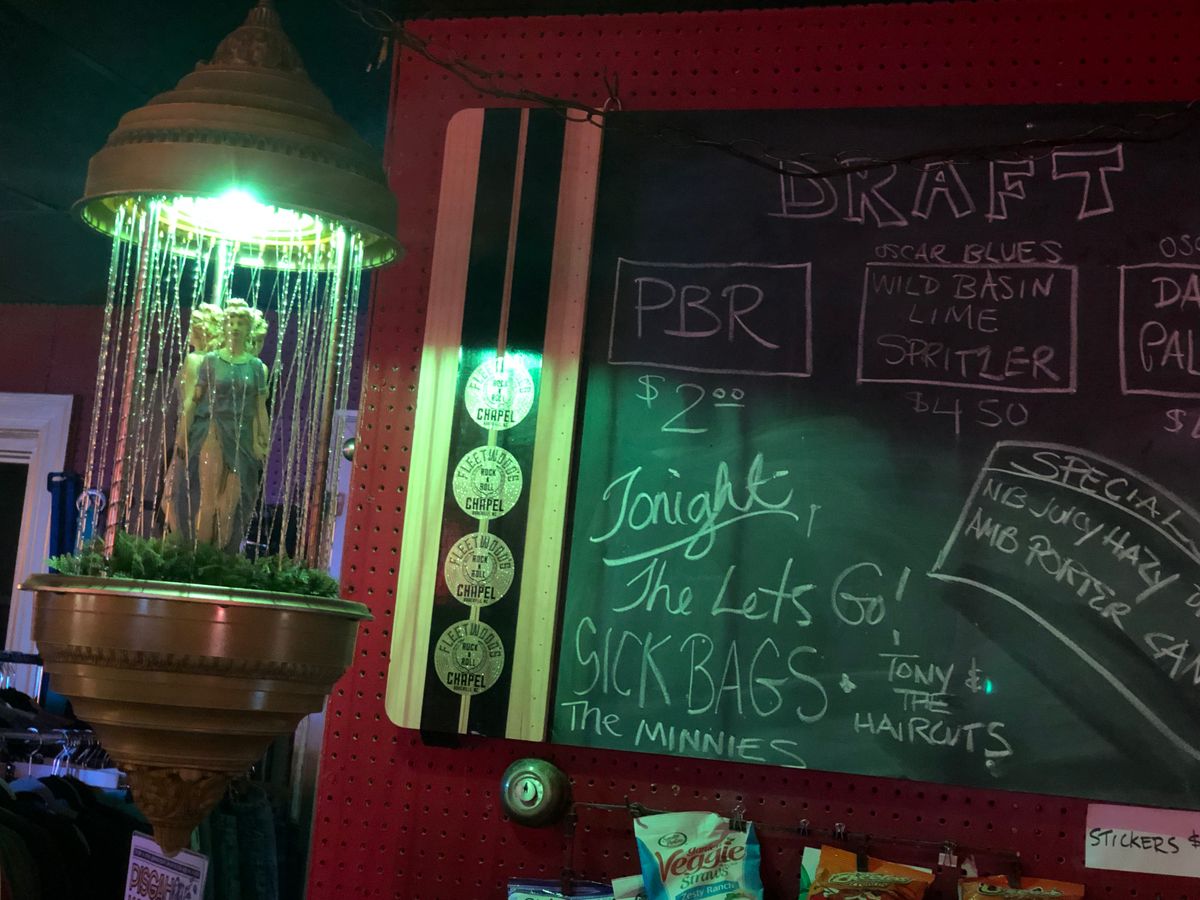 DRAFT
PBR
$2.00
OSCAR BLUES
WILD BASIN
LIME
SPRITZER
$4.50
Tonight,
The Lets Go!
SICK BAGS
TONY &
THE
HAIRCUTS
The MINNIES
SPECIAL
NB JUICY HAZY
AMB PORTER
FLEETWOOD'S
ROCK
N
ROLL
CHAPEL
FLEETWOOD'S
ROCK
N
ROLL
CHAPEL
FLEETWOOD'S
ROCK
N
ROLL
CHAPEL
FLEETWOOD'S
ROCK
N
ROLL
CHAPEL
Veggie
Straws
Zesty Ranch
STICKERS $